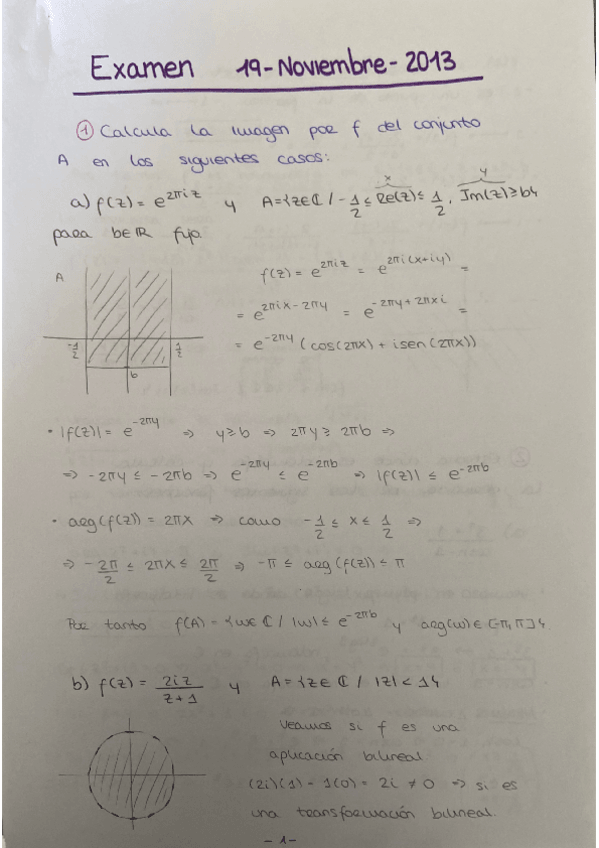 Examen 19-Noviembre-2013
① Calcula la imagen por f del conjunto
A en los siguientes casos:
a) f(z) = e^{2πiz} y A={z∈ℂ / -1/2 ≤ Re(z) ≤ 1/2, Im(z) ≥ b}
x y
para b∈ℝ fijo.
A
-1/2 1/2
b
f(z) = e^{2πiz} = e^{2πi(x+iy)} =
= e^{2πix-2πy} = e^{-2πy+2πxi} =
= e^{-2πy} (cos(2πx) + isen(2πx))
· |f(z)| = e^{-2πy} ⇒ y≥b ⇒ 2πy ≥ 2πb ⇒
⇒ -2πy ≤ -2πb ⇒ e^{-2πy} ≤ e^{-2πb} ⇒ |f(z)| ≤ e^{-2πb}
· arg(f(z)) = 2πx ⇒ como -1/2 ≤ x ≤ 1/2 ⇒
⇒ -2π/2 ≤ 2πx ≤ 2π/2 ⇒ -π ≤ arg(f(z)) ≤ π
Por tanto f(A) = {w∈ℂ / |w| ≤ e^{-2πb} y arg(w)∈[-π,π]}
b) f(z) = 2iz/(z+1) y A={z∈ℂ / |z| < 1}
Veamos si f es una
aplicación bilineal
(2i)(1) - 1(0) = 2i ≠ 0 ⇒ si es
una transformación bilineal.
-1-